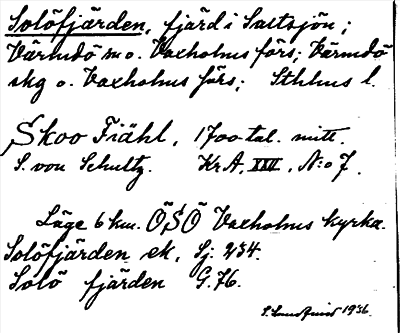 Solöfjärden, fjärd i Saltsjön;
Värmdö m o. Vaxholms förs; Värmdö
skg o. Vaxholms förs; Sthlms l.
Skoo Fiähl, 1700-tal. mitt.
S. von Schultz. Kr A, XXII, N:o 7.
Läge 6 km. ÖSÖ Vaxholms kyrka.
Solöfjärden ek. Sj. 234.
Solö fjärden G. 76.
1936.